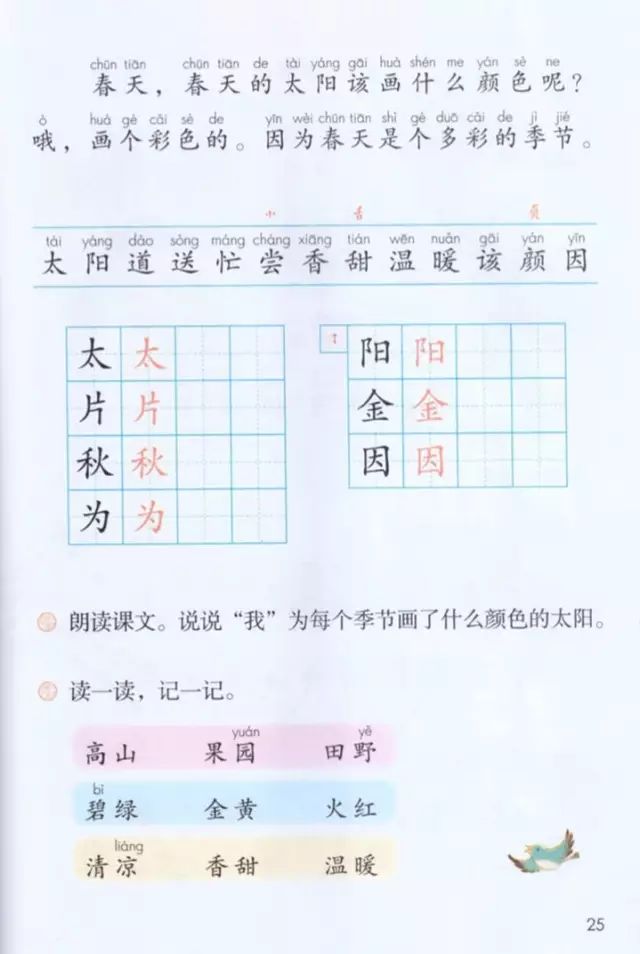 chūn tiān chūn tiān de tài yáng gāi huà shén me yán sè ne
春天，春天的太阳该画什么颜色呢？
ò huà gè cǎi sè de yīn wèi chūn tiān shì gè duō cǎi de jì jié
哦，画个彩色的。因为春天是个多彩的季节。
小 舌 页
tài yáng dào sòng máng cháng xiāng tián wēn nuǎn gāi yán yīn
太阳道送忙尝香甜温暖该颜因
太 太 阳 阳
片 片 金 金
秋 秋 因 因
为 为
朗读课文。说说“我”为每个季节画了什么颜色的太阳。
读一读，记一记。
yuán yě
高山 果园 田野
bì
碧绿 金黄 火红
liáng
清凉 香甜 温暖
25